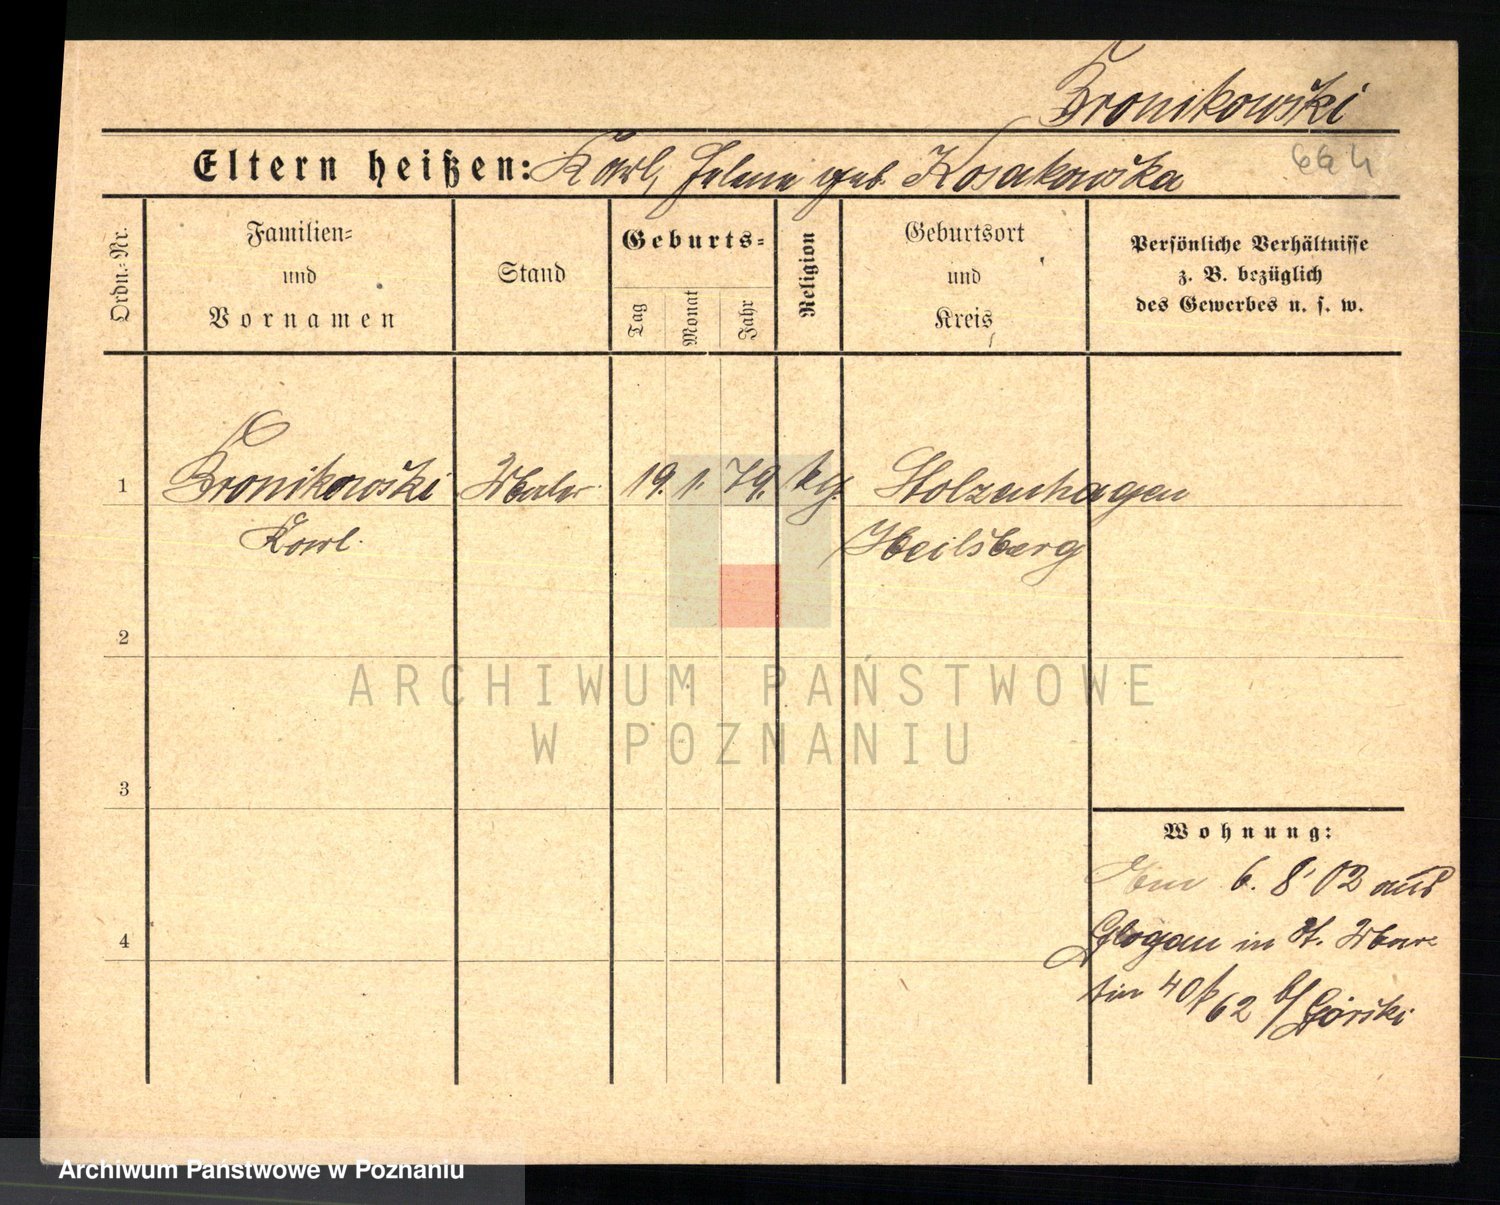 Bronikowski
Eltern heißen: Karl, Helene geb. Kosakowska
Ordn.-Nr.
Familien-
und
Vornamen
Stand
Geburts-
Tag
Monat
Jahr
Religion
Geburtsort
und
Kreis
Persönliche Verhältnisse
z. B. bezüglich
des Gewerbes u. s. w.
1
Bronikowski
Karl.
Maler
19. 1. 79.
Stolzenhagen
Heilsberg
2
3
4
Wohnung:
6. 8. 02 aus
Glogau in St. Mar-
tin 40/62 b/ Górski
ARCHIWUM PAŃSTWOWE
W POZNANIU
Archiwum Państwowe w Poznaniu